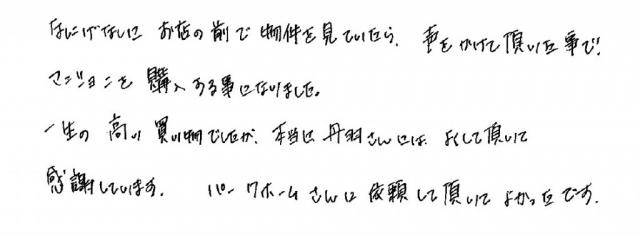 なにげないに お店の前で物件を見ていたら、声をかけて頂いた事で!
マンションを購入する事になりました。
一生の高い買い物でしたが、本当に丹羽さんには よくして頂いて
感謝しています。 パークホームさんに依頼して頂いて よかったです。